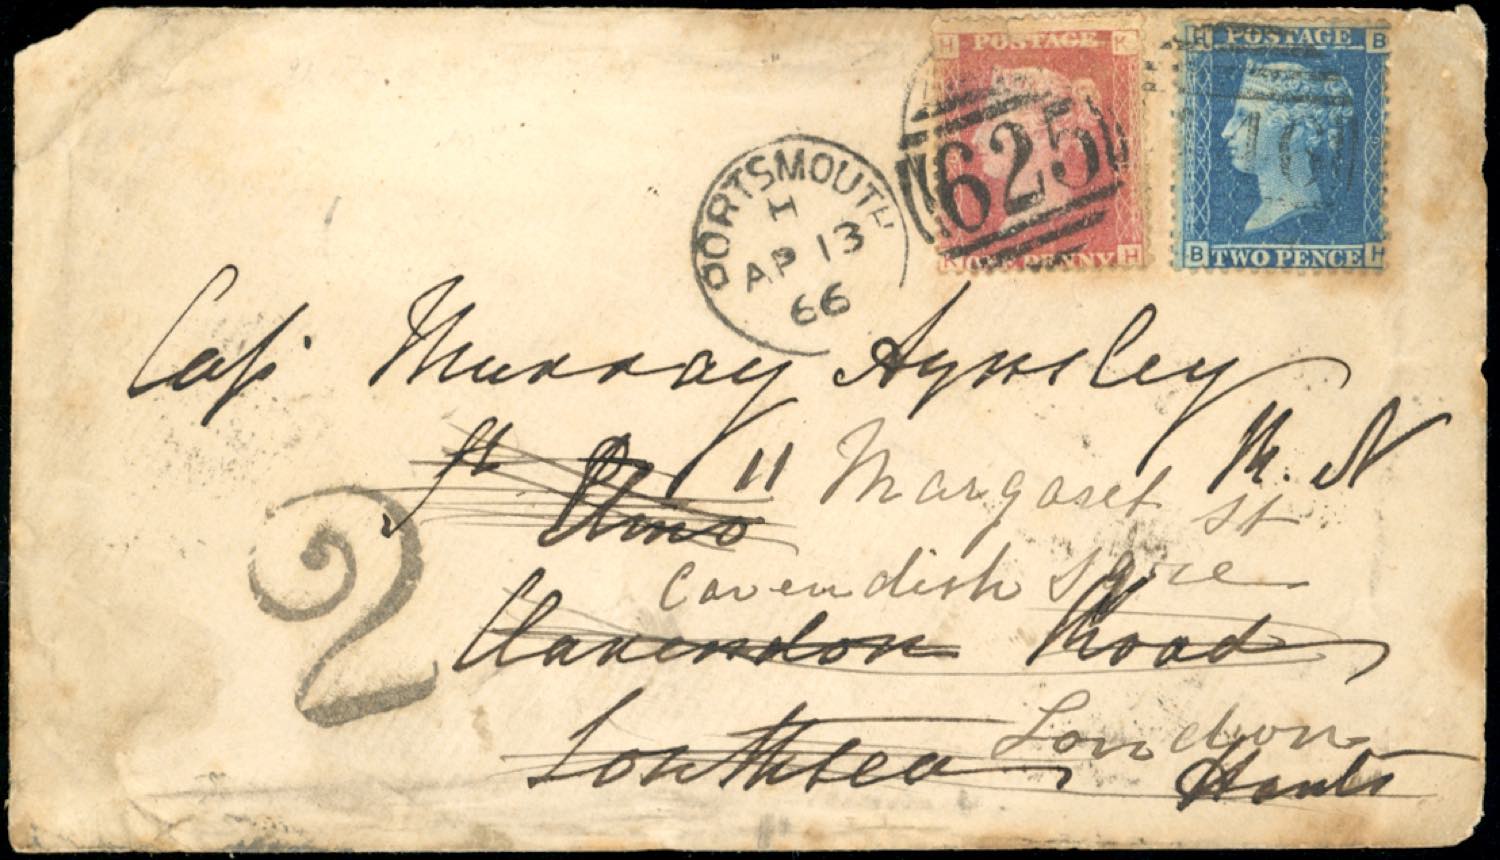 H POSTAGE K
H POSTAGE B
625
16
PORTSMOUTH
I
AP 13
66
ONE PENNY H
B TWO PENCE H
Cap Murray Aynsley
R. N
St Elmo
11 Margaret St
Cavendish Sqre
Clarendon Road
2
London
Southsea Hants